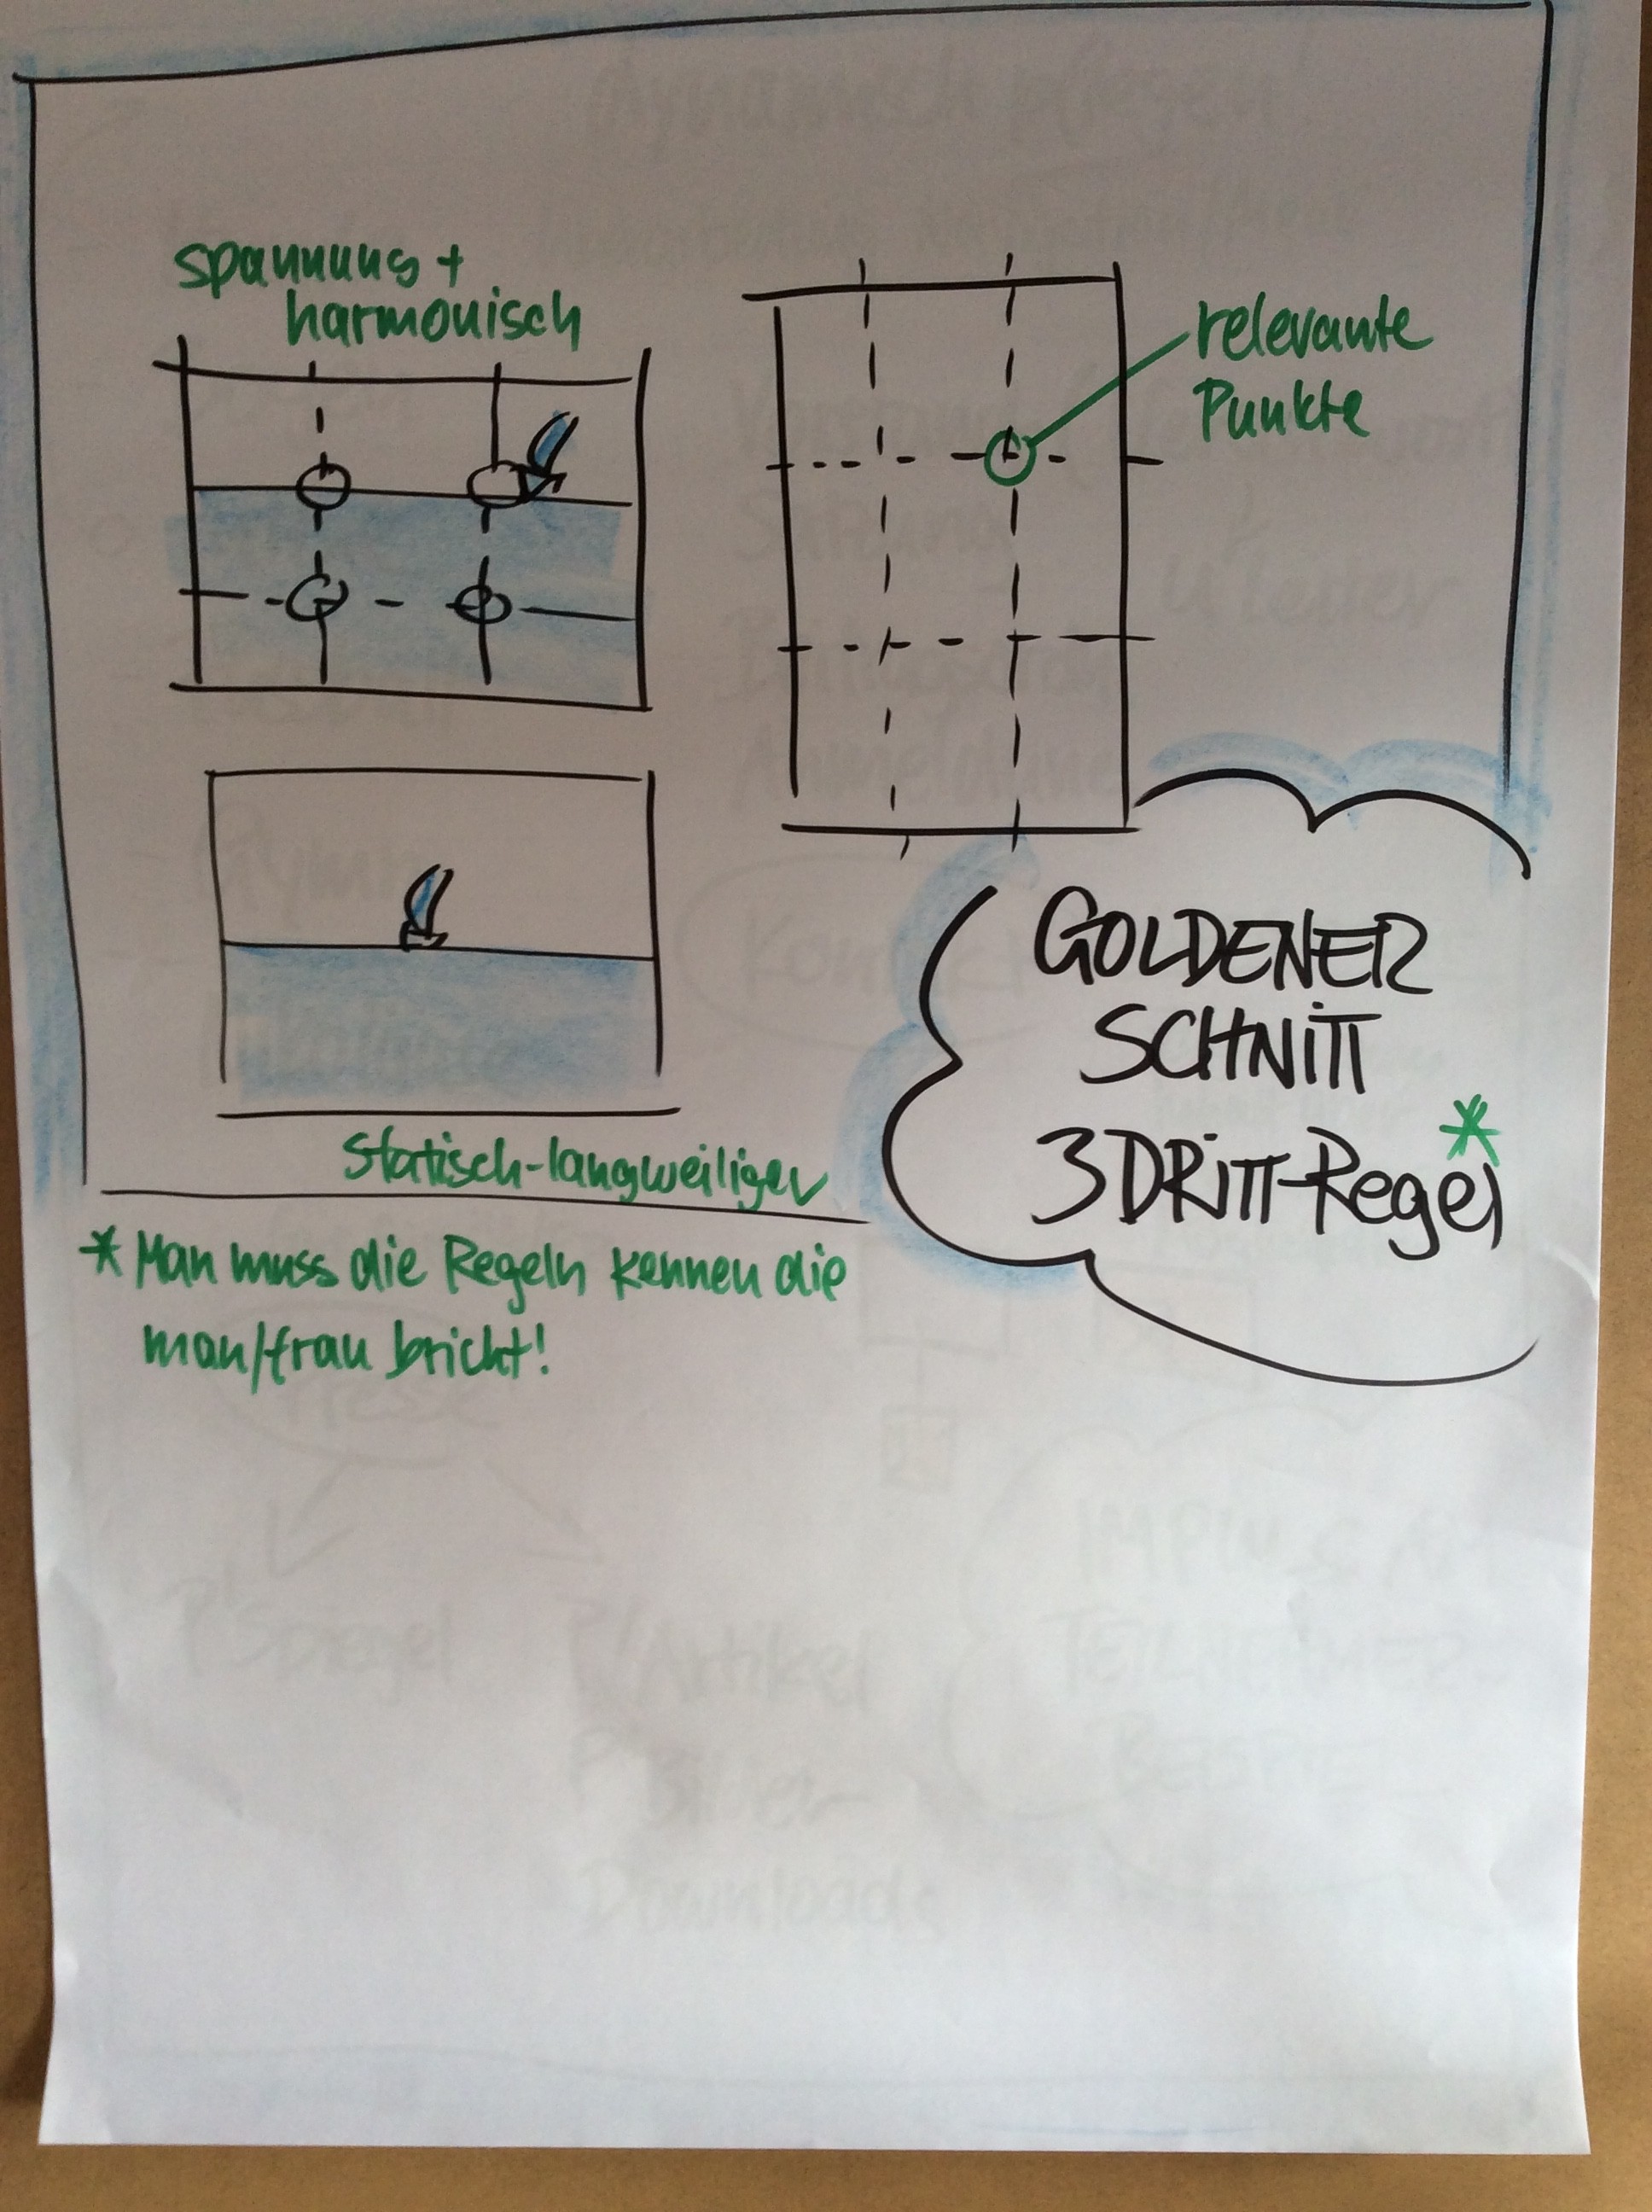 spannung +
harmonisch
relevante
Punkte
GOLDENER
SCHNITT
3DRITT-Regel*
statisch-langweiliger
* Man muss die Regeln kennen die
man/frau bricht!
Spiegel
Artikel
Bilder-
Downloads